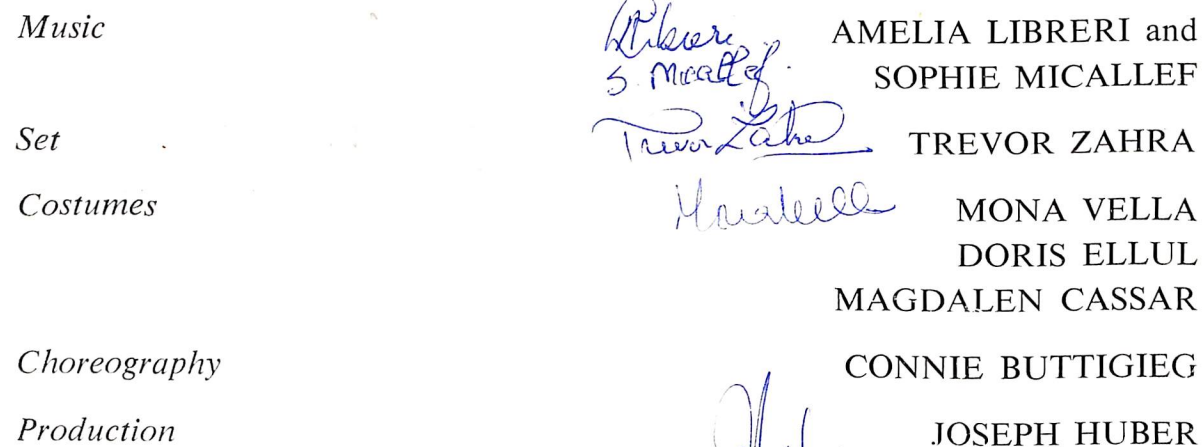 Music ALibreri AMELIA LIBRERI and
S. Micallef. SOPHIE MICALLEF
Set Trevor Zahra TREVOR ZAHRA
Costumes MonaVella MONA VELLA
DORIS ELLUL
MAGDALEN CASSAR
Choreography CONNIE BUTTIGIEG
Production JOSEPH HUBER